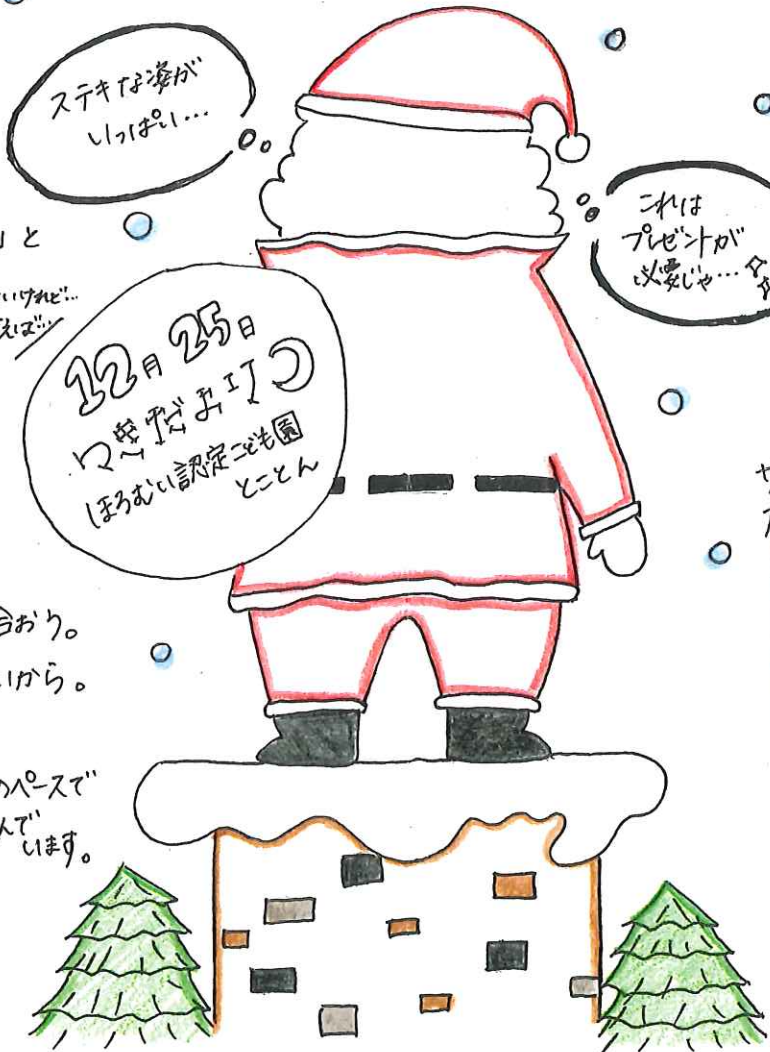 ステキな姿が
いっぱい…
これは
プレゼントが
必要じゃ…
」と
いけれど…
えば…
12月25日
つきだより
ほろむい認定こども園
とことん
合おう。
いから。
のペースで
んで
います。